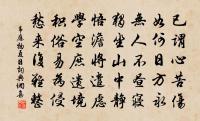 已謂心苦傷
如何日方永
無人不晝寢
獨坐山中靜
悟澹將遣慮
學空庶遺境
積俗易為侵
愁來復難整
韋應物夏日